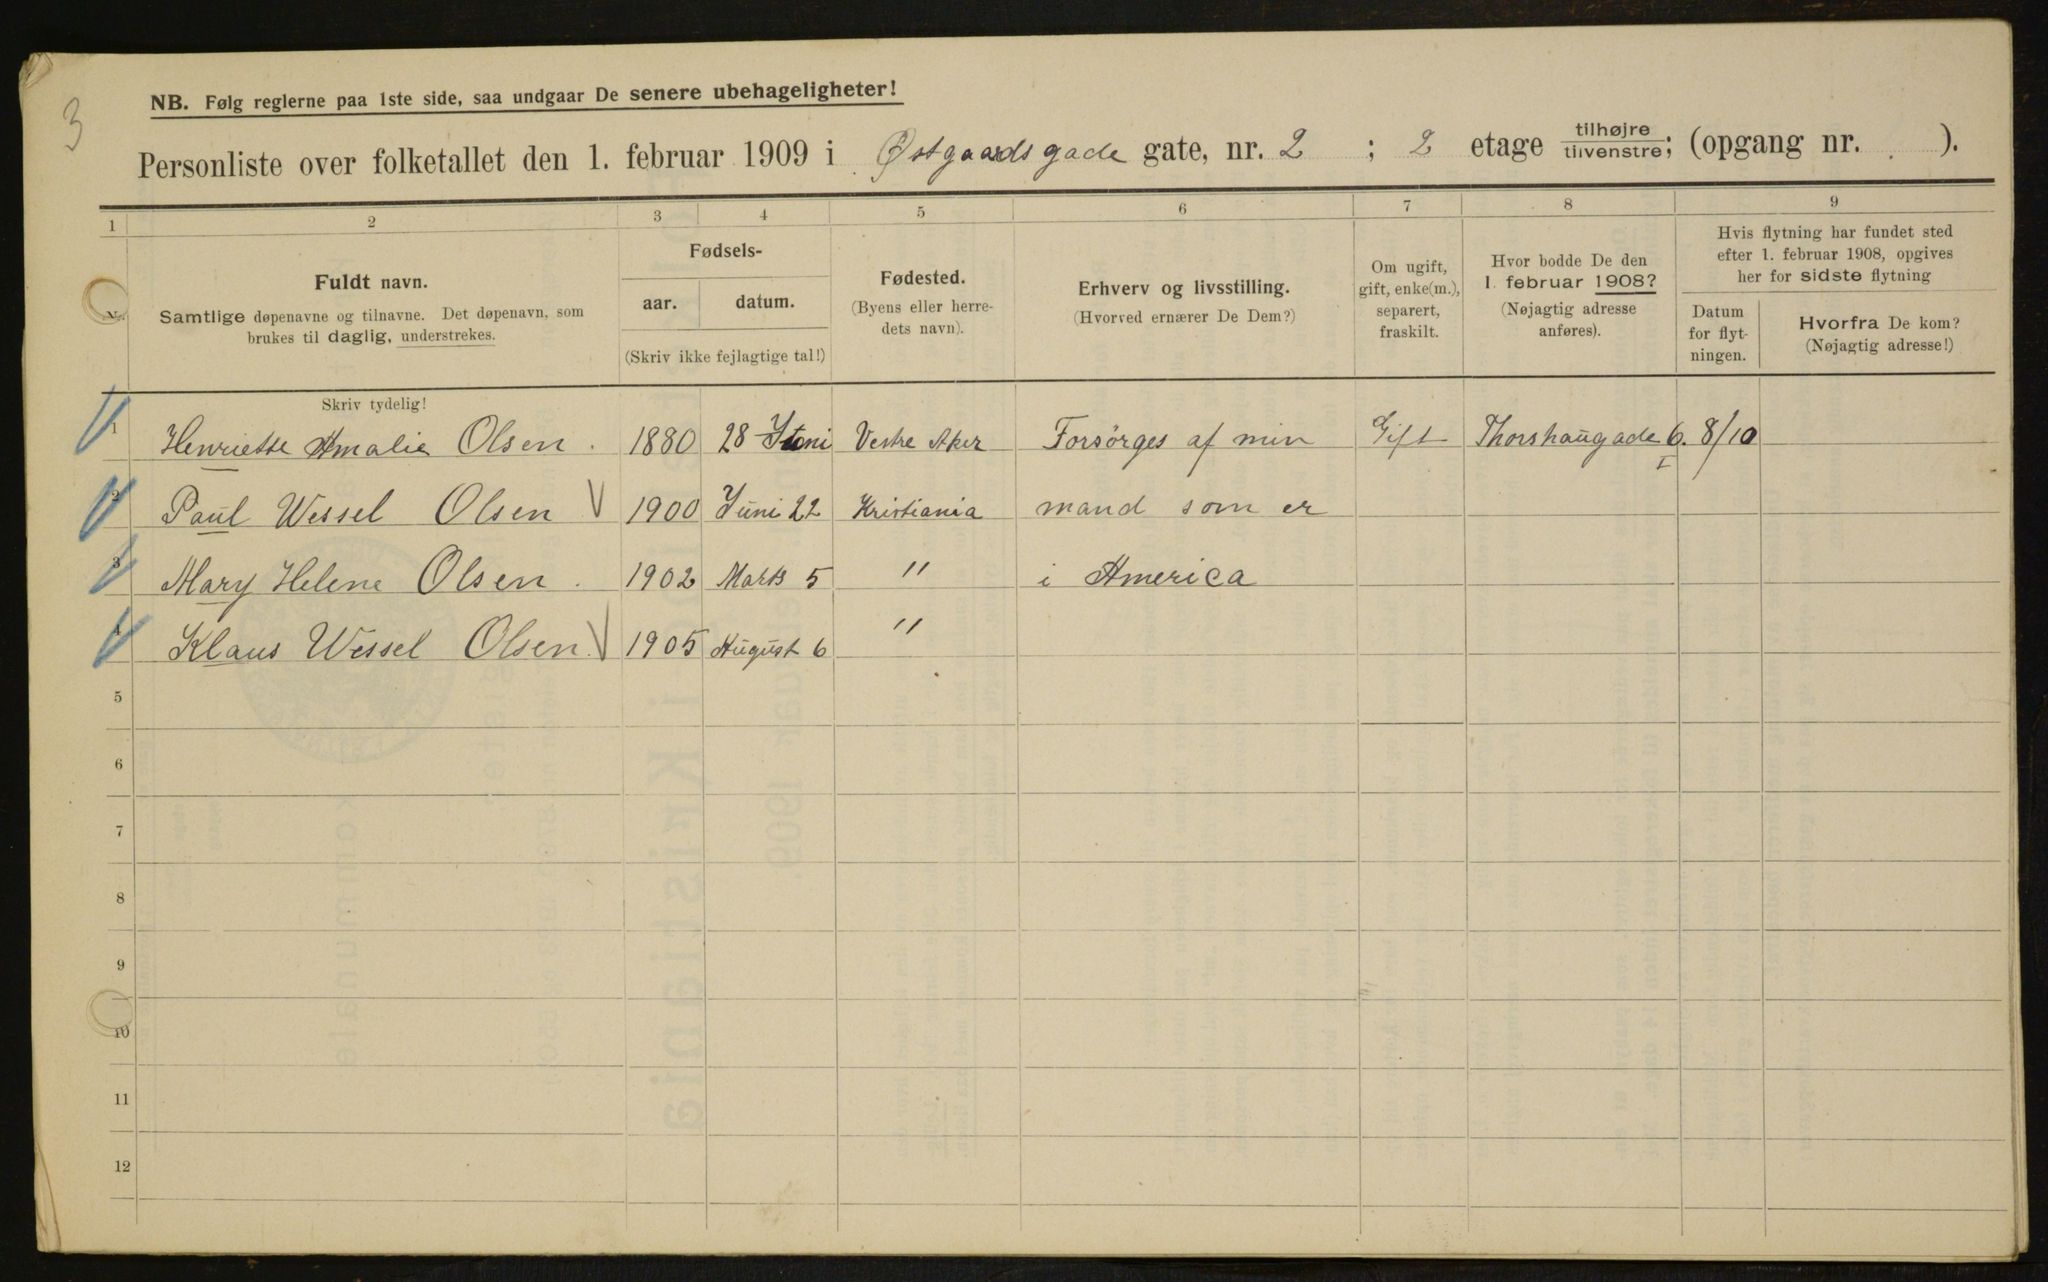 3
NB. Følg reglerne paa 1ste side, saa undgaar De senere ubehageligheter!
Personliste over folketallet den 1. februar 1909 i Østgaardsgade gate, nr. 2 ; 2 etage tilhøjre / tilvenstre; (opgang nr. ).
1 2 3 4 5 6 7 8 9
Nr.
Fuldt navn.
Samtlige døpenavne og tilnavne. Det døpenavn, som
brukes til daglig, understrekes.
Fødsels-
aar. datum.
(Skriv ikke fejlagtige tal!)
Fødested.
(Byens eller herre-
dets navn).
Erhverv og livsstilling.
(Hvorved ernærer De Dem?)
Om ugift,
gift, enke(m.),
separert,
fraskilt.
Hvor bodde De den
1. februar 1908?
(Nøjagtig adresse
anføres).
Hvis flytning har fundet sted
efter 1. februar 1908, opgives
her for sidste flytning
Datum
for flyt-
ningen.
Hvorfra De kom?
(Nøjagtig adresse!)
Skriv tydelig!
1 Henriette Amalie Olsen. 1880 28 Juni Vestre Aker Forsörges af min Gift Thorshaugade 6. I 8/10
2 Paul Wessel Olsen 1900 Juni 22 Kristiania mand som er
3 Mary Helene Olsen. 1902 Marts 5 " i America
4 Klaus Wessel Olsen. 1905 August 6 "
5
6
7
8
9
10
11
12